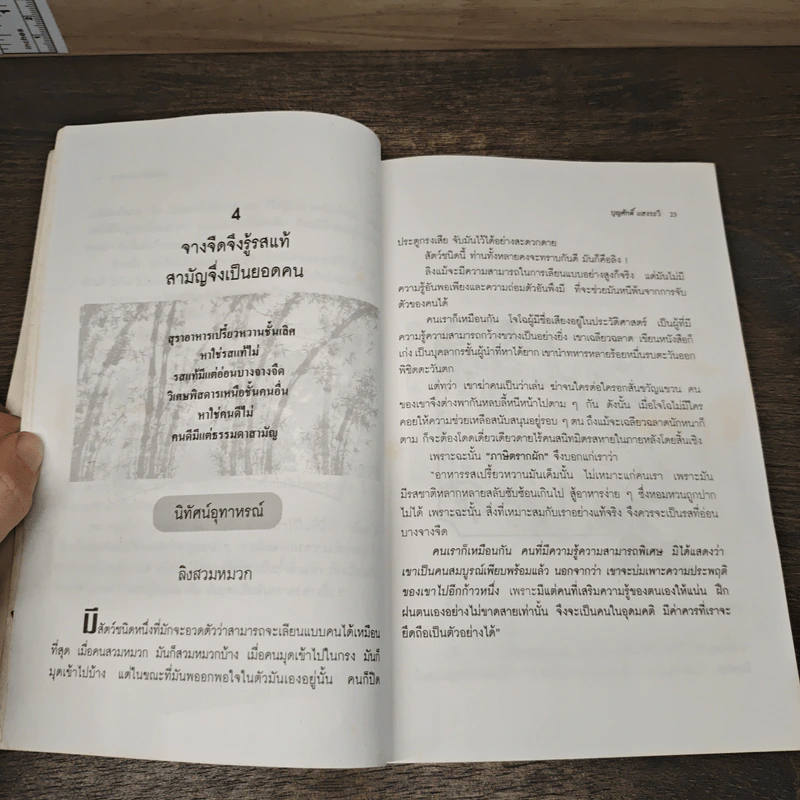 4
จางจืดจึงรู้รสแท้
สามัญจึ่งเป็นยอดคน
สุราอาหารเปรี้ยวหวานชั้นเลิศ
หาใช่รสแท้ไม่
รสแท้มีแต่อ่อนบางจางจืด
วิเศษพิสดารเหนือชั้นคนอื่น
หาใช่คนดีไม่
คนดีมีแต่ธรรมดาสามัญ
นิทัศน์อุทาหรณ์
ลิงสวมหมวก
มีสัตว์ชนิดหนึ่งที่มักจะอวดตัวว่าสามารถจะเลียนแบบคนได้เหมือน
ที่สุด เมื่อคนสวมหมวก มันก็สวมหมวกบ้าง เมื่อคนมุดเข้าไปในกรง มันก็
มุดเข้าไปบ้าง แต่ในขณะที่มันพออกพอใจในตัวมันเองอยู่นั้น คนก็ปิด
บุญศักดิ์ แสงระวี 23
ประตูกรงเสีย จับมันไว้ได้อย่างสะดวกดาย
สัตว์ชนิดนี้ ท่านทั้งหลายคงจะทราบกันดี มันก็คือลิง !
ลิงแม้จะมีความสามารถในการเลียนแบบอย่างสูงก็จริง แต่มันไม่มี
ความรู้อันพอเพียงและความถ่อมตัวอันพึงมี ที่จะช่วยมันหนีพ้นจากการจับ
ตัวของคนได้
คนเราก็เหมือนกัน โจโฉผู้มีชื่อเสียงอยู่ในประวัติศาสตร์ เป็นผู้ที่มี
ความรู้ความสามารถกว้างขวางเป็นอย่างยิ่ง เขาเฉลียวฉลาด เขียนหนังสือก็
เก่ง เป็นบุคลากรชั้นผู้นำที่หาได้ยาก เขานำทหารหลายร้อยหมื่นรบตะวันออก
พิชิตตะวันตก
แต่ทว่า เขาฆ่าคนเป็นว่าเล่น ฆ่าจนใครต่อใครอกสั่นขวัญแขวน คน
ของเขาจึงต่างพากันหลบลี้หนีหน้าไปตาม ๆ กัน ดังนั้น เมื่อโจโฉไม่มีใคร
คอยให้ความช่วยเหลือสนับสนุนอยู่รอบ ๆ ตน ถึงแม้จะเฉลียวฉลาดนักหนาก็
ตาม ก็จะต้องโดดเดี่ยวเดียวดายไร้คนสนิทมิตรสหายในภายหลังโดยสิ้นเชิง
เพราะฉะนั้น "ภาษิตรากผัก" จึงบอกแก่เราว่า
"อาหารรสเปรี้ยวหวานมันเค็มนั้น ไม่เหมาะแก่คนเรา เพราะมัน
มีรสชาติหลากหลายสลับซับซ้อนเกินไป สู้อาหารง่าย ๆ ซึ่งหอมหวนถูกปาก
ไม่ได้ เพราะฉะนั้น สิ่งที่เหมาะสมกับเราอย่างแท้จริง จึงควรจะเป็นรสที่อ่อน
บางจางจืด
คนเราก็เหมือนกัน คนที่มีความรู้ความสามารถพิเศษ มิได้แสดงว่า
เขาเป็นคนสมบูรณ์เพียบพร้อมแล้ว นอกจากว่า เขาจะบ่มเพาะความประพฤติ
ของเขาไปอีกก้าวหนึ่ง เพราะมีแต่คนที่เสริมความรู้ของตนเองให้แน่น ฝึก
ฝนตนเองอย่างไม่ขาดสายเท่านั้น จึงจะเป็นคนในอุดมคติ มีค่าควรที่เราจะ
ยึดถือเป็นตัวอย่างได้"